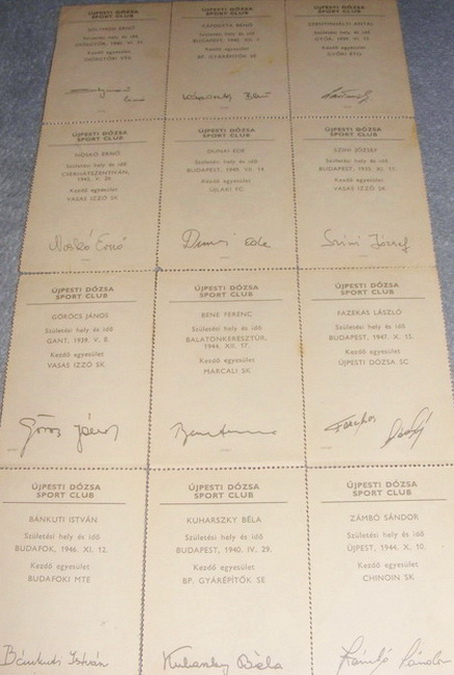 SOLYMOSI ERNŐ
Születési hely és idő
DIÓSGYŐR, 1940. VI. 21.
Kezdő egyesület
DIÓSGYŐRI VTK
KÁPOSZTA BENŐ
Születési hely és idő
BUDAPEST, 1942. VII. 7.
Kezdő egyesület
BP. GYÁRÉPÍTŐK SE
Káposzta Benő
SZENTMIHÁLYI ANTAL
Születési hely és idő
GYŐR, 1939. VI. 13.
Kezdő egyesület
GYŐRI ETO
ÚJPESTI DÓZSA
SPORT CLUB
NOSKÓ ERNŐ
Születési hely és idő
CSERHÁTSZENTIVÁN,
1945. V. 26.
Kezdő egyesület
VASAS IZZÓ SK
Noskó Ernő
ÚJPESTI DÓZSA
SPORT CLUB
DUNAI EDE
Születési hely és idő
BUDAPEST, 1949. VII. 14.
Kezdő egyesület
ÚJLAKI FC
Dunai Ede
ÚJPESTI DÓZSA
SPORT CLUB
SZINI JÓZSEF
Születési hely és idő
BUDAPEST, 1935. XI. 11.
Kezdő egyesület
VASAS IZZÓ SK
Szini József
ÚJPESTI DÓZSA
SPORT CLUB
GÖRÖCS JÁNOS
Születési hely és idő
GANT, 1939. V. 8.
Kezdő egyesület
VASAS IZZÓ SK
Göröcs János
ÚJPESTI DÓZSA
SPORT CLUB
BENE FERENC
Születési hely és idő
BALATONKERESZTÚR,
1944. XII. 17.
Kezdő egyesület
MARCALI SK
Bene Ferenc
ÚJPESTI DÓZSA
SPORT CLUB
FAZEKAS LÁSZLÓ
Születési hely és idő
BUDAPEST, 1947. X. 15.
Kezdő egyesület
ÚJPESTI DÓZSA SC
Fazekas László
ÚJPESTI DÓZSA
SPORT CLUB
BÁNKUTI ISTVÁN
Születési hely és idő
BUDAFOK, 1946. XI. 12.
Kezdő egyesület
BUDAFOKI MTE
Bánkuti István
ÚJPESTI DÓZSA
SPORT CLUB
KUHARSZKY BÉLA
Születési hely és idő
BUDAPEST, 1940. IV. 29.
Kezdő egyesület
BP. GYÁRÉPÍTŐK SE
Kuharszky Béla
ÚJPESTI DÓZSA
SPORT CLUB
ZÁMBÓ SÁNDOR
Születési hely és idő
ÚJPEST, 1944. X. 10.
Kezdő egyesület
CHINOIN SK
Zámbó Sándor